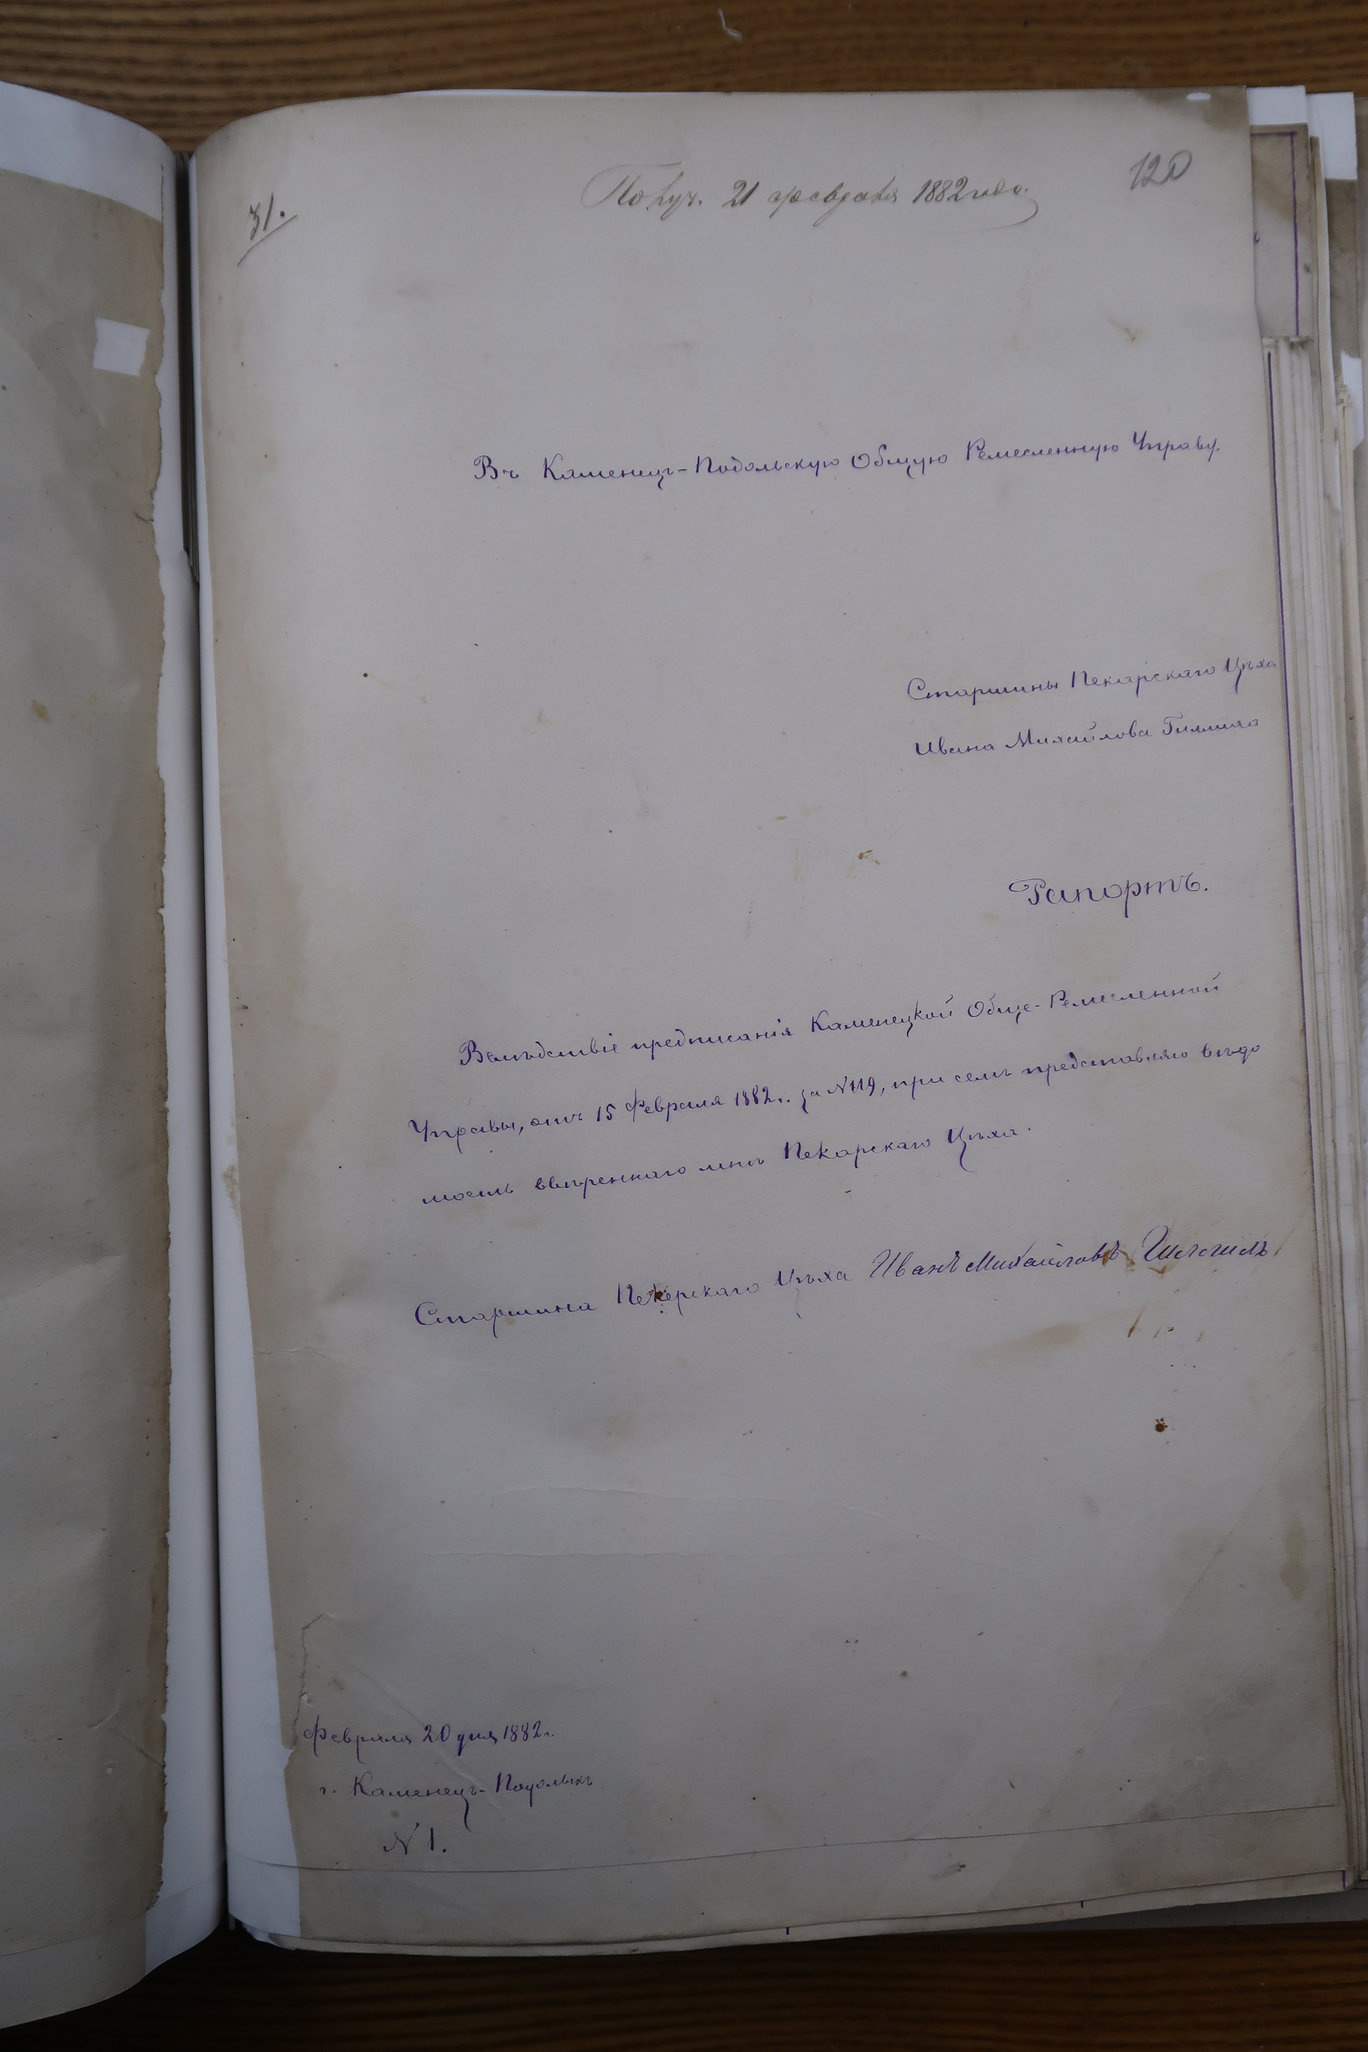 120
31.
Получ. 21 февраля 1882 года.
Въ Каменецъ-Подольскую Общую Ремесленную Управу.
Старшины Пекарскаго Цѣха
Ивана Михайлова
Рапортъ.
Вслѣдствіе предписанія Каменецкой Обще-Ремесленной
Управы, отъ 15 Февраля 1882 г. за N 119, при семъ представляю вѣдо
мость ввѣреннаго мнѣ Пекарскаго Цѣха.
Старшина Пекарскаго Цѣха Иванъ Михайловъ
Февраля 20 дня 1882 г.
г. Каменецъ-Подольскъ
N 1.